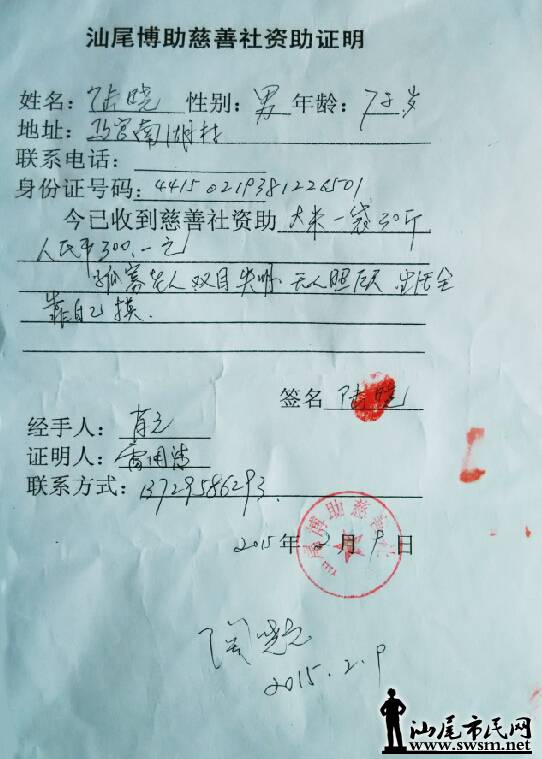 汕尾博助慈善社资助证明
姓名：陆晓 性别：男 年龄：7 岁
地址： 宫南湖村
联系电话：
身份证号码：441502193812226501
今已收到慈善社资助 大米一袋30斤
人民币300.-元
孤寡老人 双目失明 无人照顾 生活全
靠自己摸.
签名 陆晓
经手人：肖
证明人：
联系方式：13729586293
汕尾博助慈善社
2015年2月9日
2015.2.9
汕尾市民网
www.swsm.net